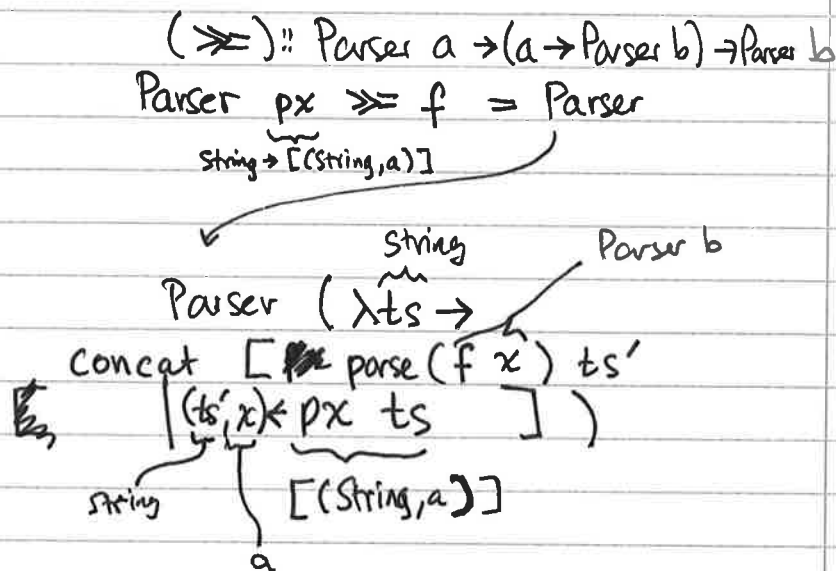 (>>=) :: Parser a → (a → Parser b) → Parser b
Parser px >>= f = Parser
String → [(String, a)]
String
Parser b
Parser (λts →
concat [ parse (f x) ts'
| (ts', x) ← px ts ] )
String
[(String, a)]
a